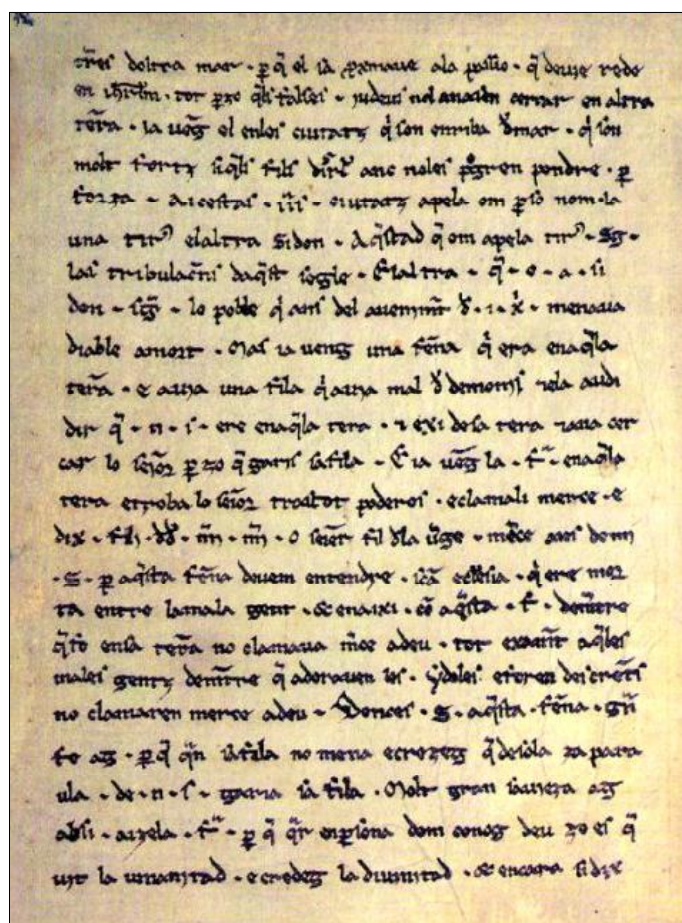 terres doltra mar · p q el ia pxmaue ala passio · q deuie rede
en ihrlm · tot pzo qls falses · iudeus nol anauen cercar en altra
tera · ia ueg el enles ciutatz q son enriba d mar · q son
molt fortz siqls fils disrl anc noles pogren pendre · p
forza · Aicestas · iii · ciutatz apela om p so nom · la
una tir elaltra Sidon · Aqstad q om apela tir · Sg ·
las tribulacns daqst segle · Elaltra · q · e · a · si
don · sg · lo poble q ans del auenimt d · i · x · menaua
diable amort · Mas ia ueng una fena q era enaqla
tera · e auia una fila q auia mal d demonis iela audi
dir q · n · s · ere enaqla tera · 7 exi desa tera 7 ana cer
car lo seior p zo q garis sa fila · E ia ueg la · f · enaqla
tera etroba lo seior tot poderos · eclamali merce · e
dix · fili · dd · m · m · O seier fil d la uge · merce aies de mi
· S · p aqsta fena deuem entendre · sca eclesia · q ere mor
ta entre lamala gent · & enaixi · co aqsta · f · demetre
q fo ensa tera no clamaua mce adeu · tot examt aqles
males gentz demetre q adorauen les · ydoles eforen descrets
no clamaren merce adeu · Donces · S · aqsta · fena · gn
fe ag · p q qn sa fila no mena ecrezeg q desola za para
ula · de · n · s · garria sa fila · Molt gran sauieza ag
absi · aizela · f · p q qr enpsona dom conog deu zo es q
uit la umanitad · ecredeg la diuinitad · & encara si dix